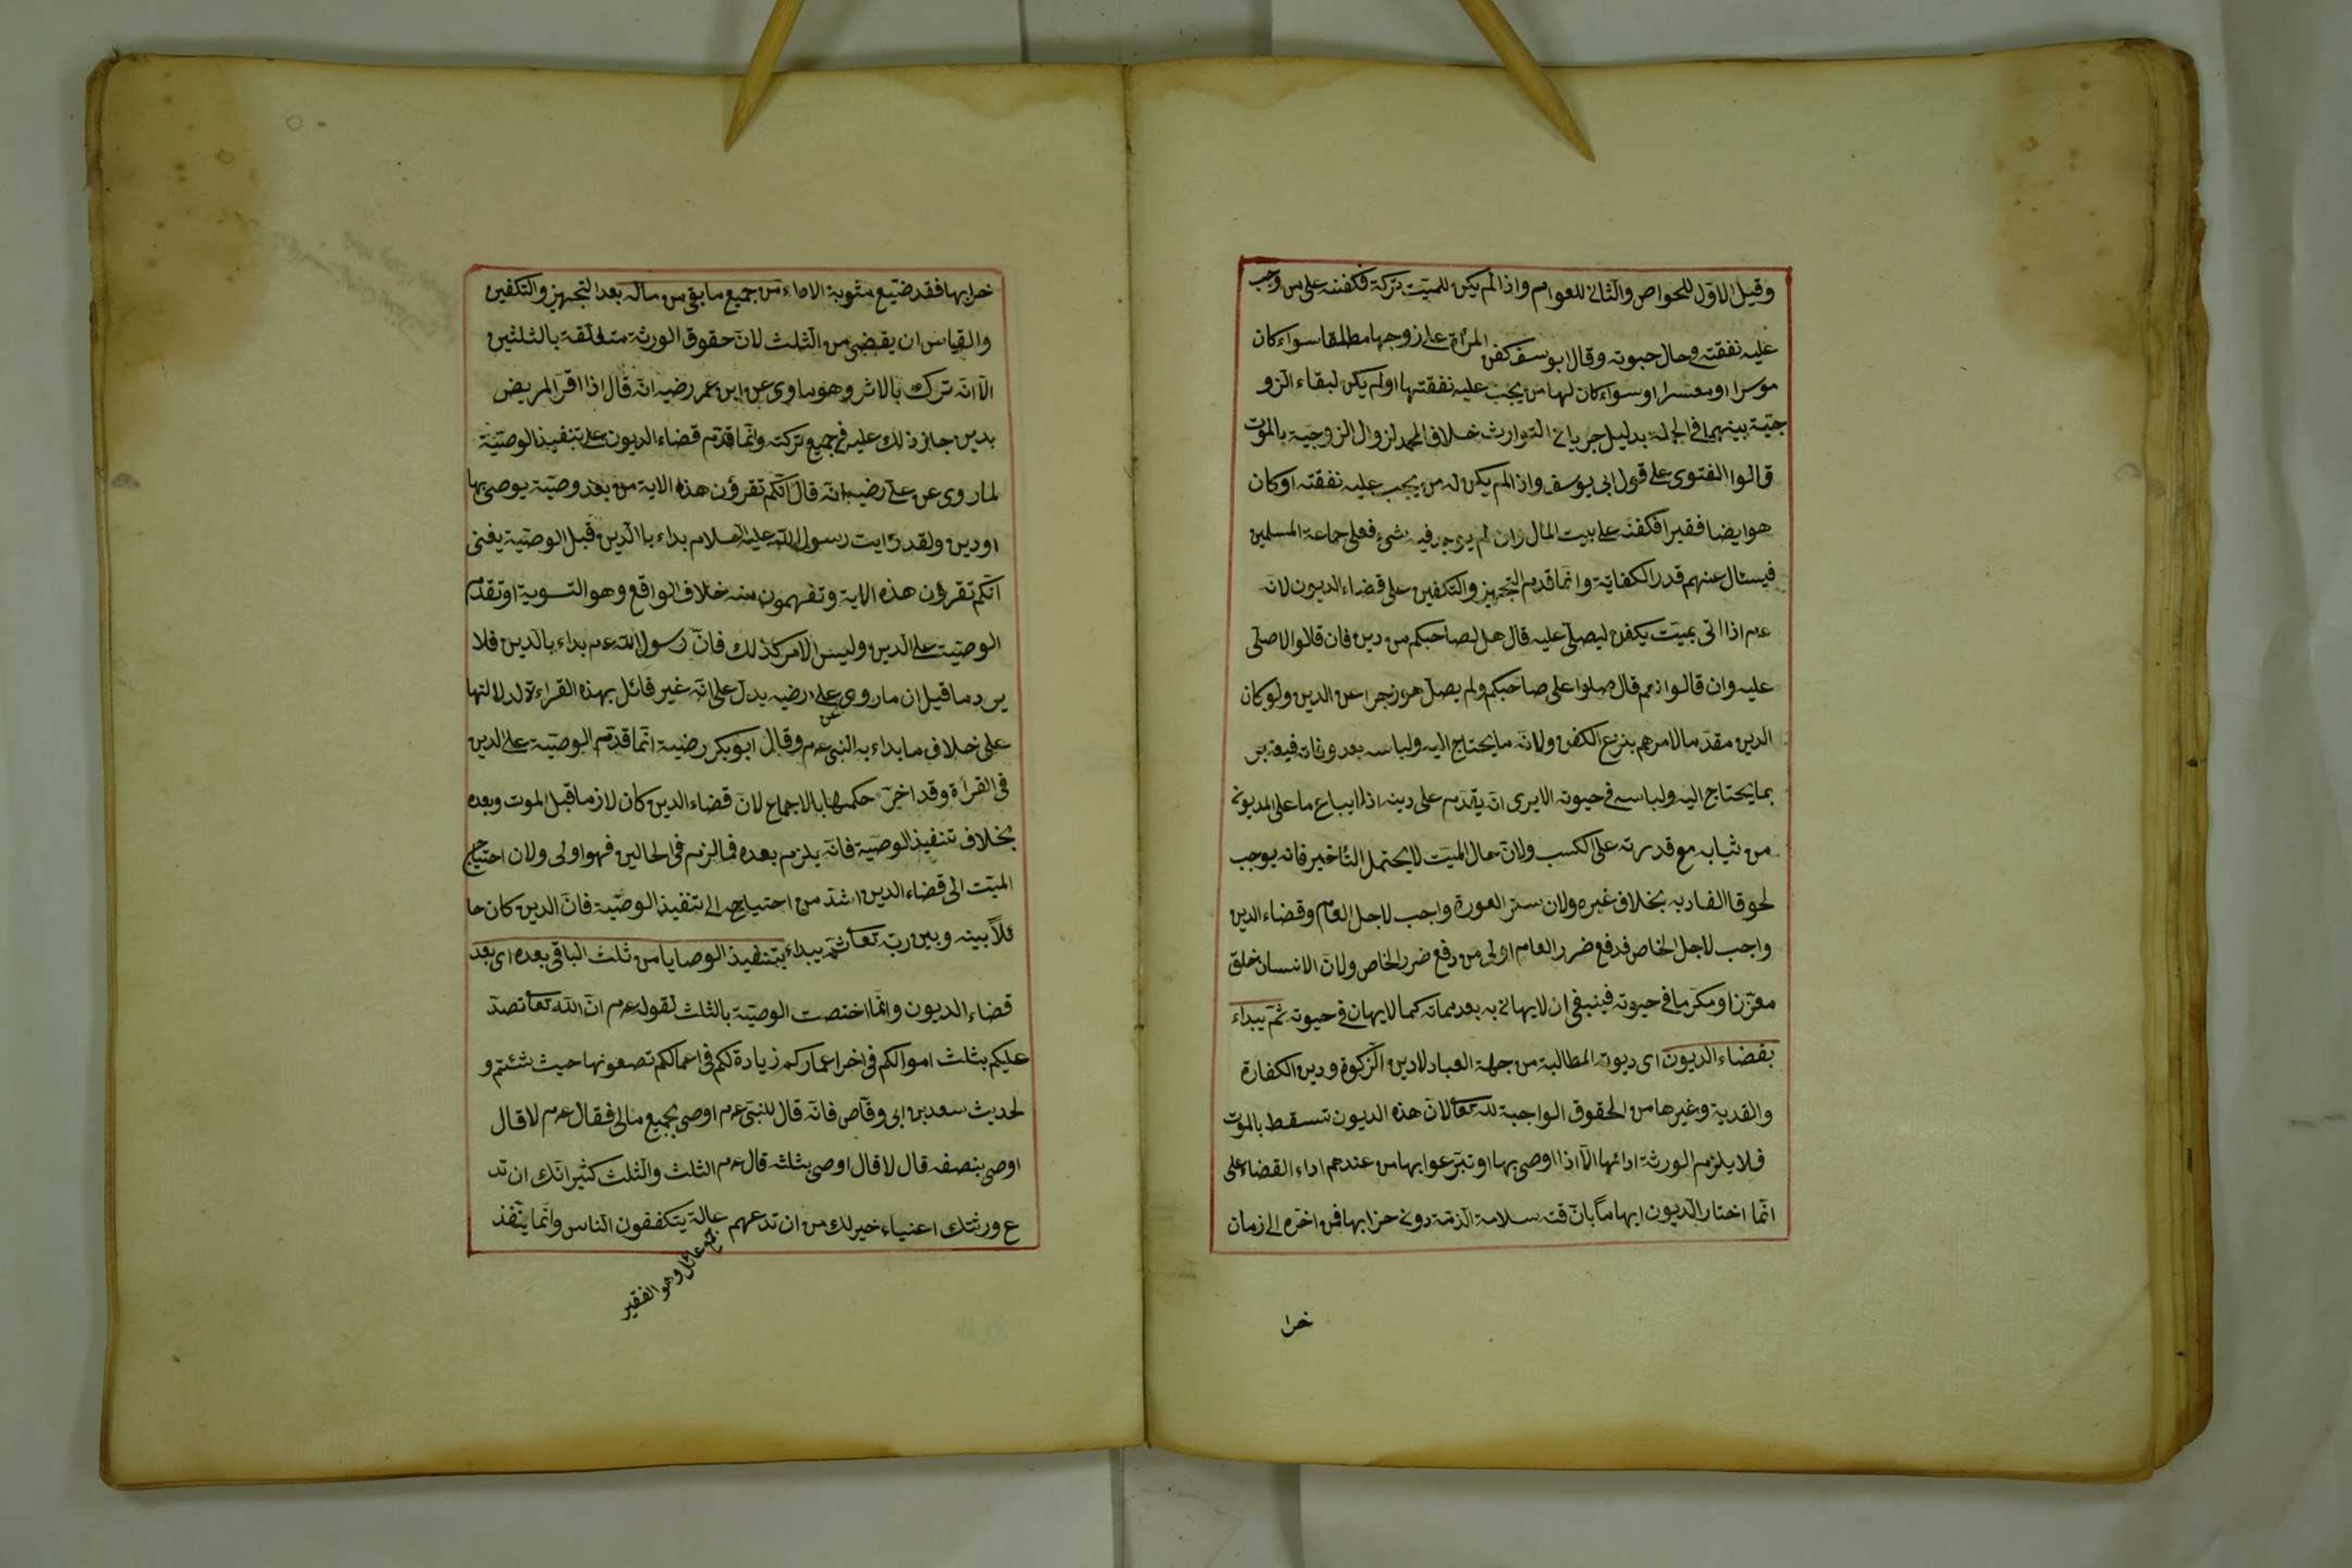 وقيل الاول للخواص والثاني للعوام واذا لم يكن للميت تركة فكفنه على من وجب
عليه نفقته وحال حيوته وقال ابو يسف كفن المرأة على زوجها مطلقا سواء كان
موسرا او معسرا او سواء كان لها من يجب عليه نفقتها او لم يكن لبقاء الزو
جيّة بينهما في الجملة بدليل جريان التوارث خلاف المحمد لزوال الزوجيّة بالموت
قالوا الفتوى على قول ابى يوسف واذا لم يكن له من يجب عليه نفقته او كان
هو ايضا فقيرا فكفنه على بيت المال وان لم يوجد فيه شئ فعلى جماعة المسلمين
فيسئال عنهم قدر الكفاية وانّما قدم التجهيز والتكفين على قضاء الديون لانّه
عم اذا اتى بميّت يكفن ليصلّى عليه قال هل لصاحبكم من دين فان قلالوا لا صلّى
عليه وان قالوا نعم قال صلوا على صاحبكم ولم يصل هو زجرا عن الدين ولو كان
الدين مقدّما لامرهم بنزع الكفن ولانّه ما يحتاج اليه ولباسه بعد وفاته فيعتبر
بما يحتاج اليه ولباسه في حيوته الا يرى انّه يقدّم على دينه اذ لا يباع ما على المديون
من ثيابه مع قدرته على الكسب ولانّ حال الميّت لا يحتمل التأخير فانه يوجب
لحوق الفساد به بخلاف غيره ولان ستر العورة واجب لاجل العام وقضاء الدين
واجب لاجل الخاص فدفع ضرر العام اولى من دفع ضرر الخاص ولانّ الانسان خلق
معزّزا ومكرّما في حيوته فينبغى ان لا يهان به بعد مماته كما لا يهان في حيوته ثمّ يبداء
بقضاء الديون اى ديون المطالبة من جهة العباد لا دين الزكوة ودين الكفارة
والفدية وغيرها من الحقوق الواجبة لله تعا لانّ هذه الديون تسقط بالموت
فلا يلزم الورثة ادائها الّا اذا اوصى بها او تبرّعوا بها من عندهم اداء القضاء على
انّما اختار الديون ايهامًا بانّ سلامة الذمّة دون بها فمن اخره الى زمان
خرا
خرابها فقد ضيّع مثوبة الاداء من جميع ما بقى من ماله بعد التجهيز والتكفين
والقياس ان يقضى من الثلث لانّ حقوق الورثة متعلّقة بالثلثين
الّا انّه ترك بالاثر وهو ما وى عن ابن عمر رضيه انّه قال اذا اقرّ المريض
بدين جاز ذلك عليه في جميع تركته وانّما قدّم قضاء الديون على تنفيذ الوصيّة
لما روى عن على رضيه انّه قال انّكم تقرؤن هذه الاية من بعد وصيّة يوصى بها
او دين ولقد رايت رسول الله عليه السلام بداء با الدين قبل الوصيّة يعنى
انّكم تقرؤن هذه الاية وتفهمون منه خلاف الواقع وهو التسوية او تقدّم
الوصيّت على الدين وليس الامر كذلك فانّ رسول الله عم بداء بالدين فلا
يرد ما قيل ان ما روى عن على رضيه يدلّ على انّه غير قائل بهذه القراءة لدلالتها
على خلاف ما بداء به النبى عم وقال ابو بكر رضيه انّما قدّم الوصيّة على الدين
في القرأة وقد اخرّ حكمها بالاجماع لانّ قضاء الدين كان لازما قبل الموت وبعده
بخلاف تنفيذ الوصيّة فانّه يلزم بعده فما لزم في الحالين فهو اولى ولان احتياج
الميّت الى قضاء الدين اشدّ من احتياجه الى تنفيذ الوصيّة فانّ الدين كان حا
ئلاً بينه وبين ربّه تعا ثمّ يبداء بتنفيذ الوصايا من ثلث الباقى بعده اى بعد
قضاء الديون وانّما اختصت الوصيّة بالثلث لقوله عم انّ الله تعا تصدّ
عليكم بثلث اموالكم في اخر اعماركم زيادة لكم في اعمالكم تصعونها حيث شئتم و
لحديث سعد بن ابى وقّاص فانّه قال للنبى عم اوصى بجميع مالى فقال عم لا قال
اوصى بنصفه قال لا قال اوصى بثلثه قال عم الثلث والثلث كثير انّك ان تد
ع ورثتك اغنياء خير لك من ان تدعهم عالة يتكففون الناس وانّما ينفذ
جمع عائل وهو الفقير